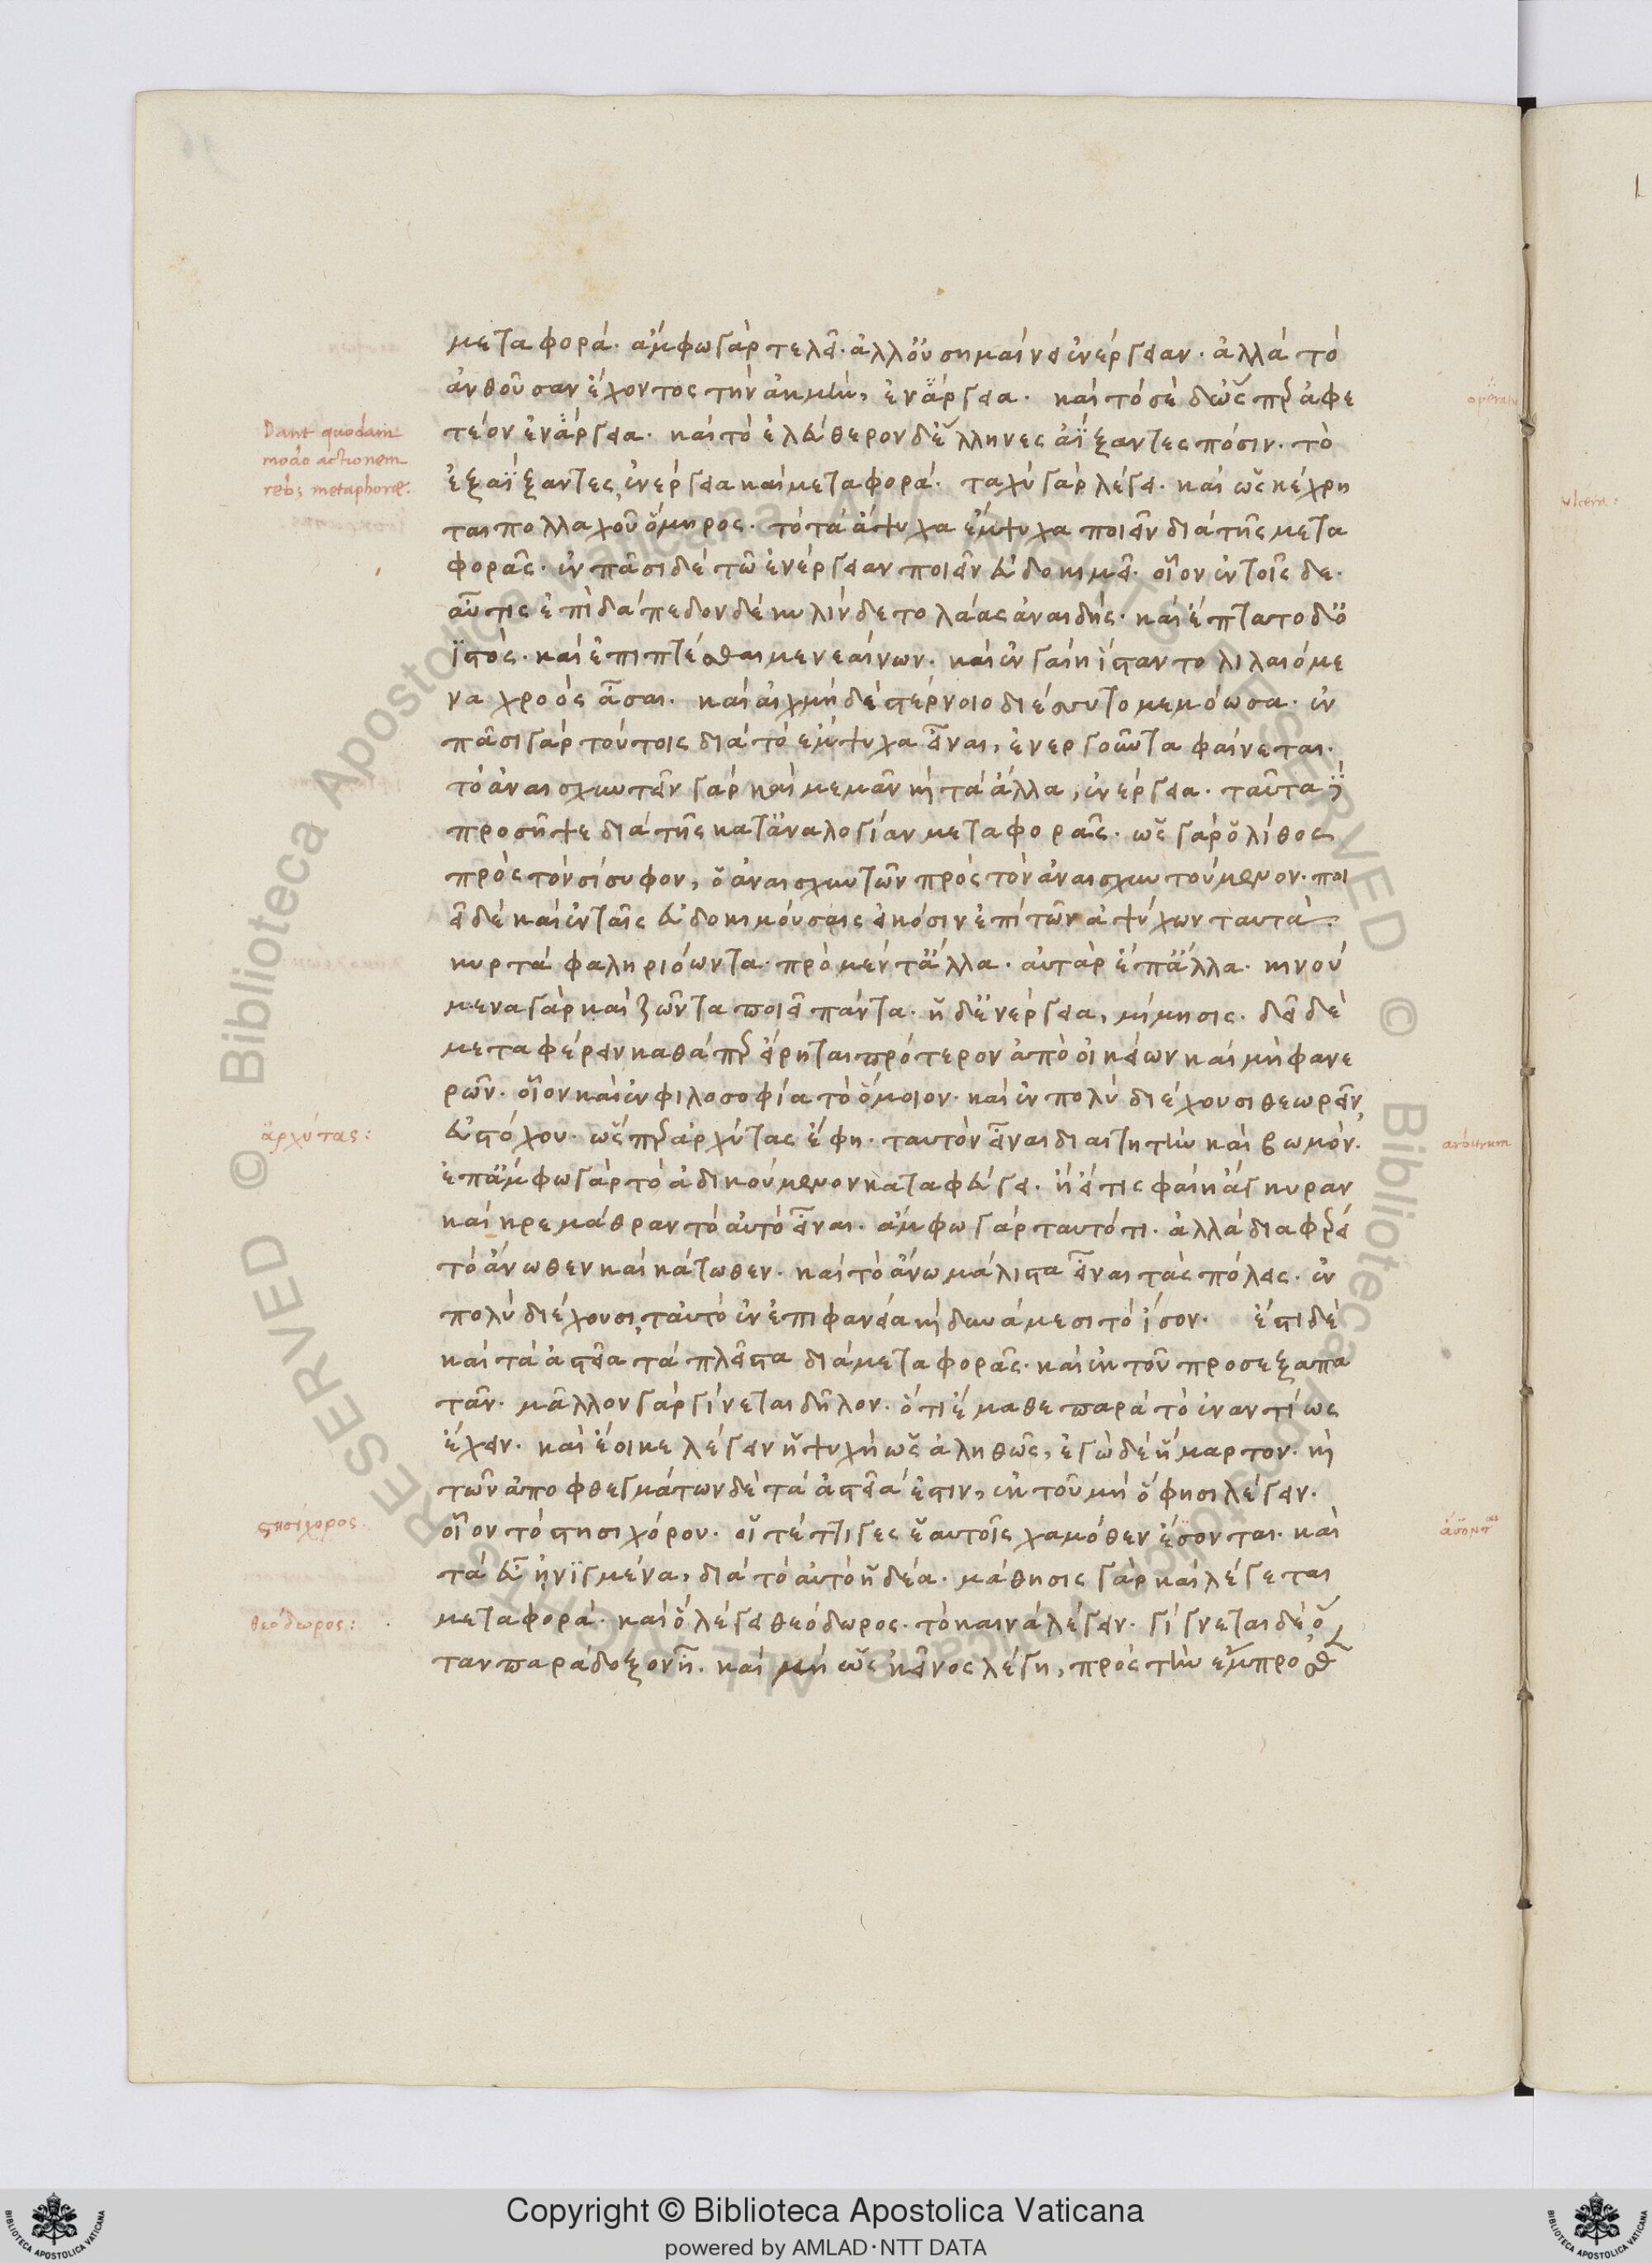 μεταφορά· ἄμφω γὰρ τελεῖ· ἀλλ' οὐ σημαίνει ἐνέργειαν· ἀλλὰ τὸ
ἀνθοῦσαν ἔχοντος τὴν ἀκμὴν, ἐνάργεια· καὶ τὸ σὲ δ' ὥσπερ ἄφε
τέον ἐνάργεια· καὶ τὸ ἐλεύθερον δ' ἕλληνες ἀΐξαντες πόσιν· τὸ
ἐξαΐξαντες, ἐνέργεια καὶ μεταφορά· ταχὺ γὰρ λέγει· καὶ ὡς κέχρη
ται πολλαχοῦ ὅμηρος· τὸ τὰ ἄψυχα ἔμψυχα ποιεῖν διὰ τῆς μετα
φορᾶς· ἐν πᾶσι δὲ τῶ ἐνέργειαν ποιεῖν εὐδοκιμεῖ· οἷον ἐν τοῖς δε·
αὖτις ἐπὶ δάπεδον δὲ κυλίνδετο λάας ἀναιδής· καὶ ἔπτατο δ' ὀ
ϊστός· καὶ ἐπιπτέσθαι μενεαίνων· καὶ ἐν γαίη ἵσταντο λιλαιόμε
να χροὸς ἆσαι· καὶ αἰχμὴ δὲ στέρνοιο διέσσυτο μεμόωσα· ἐν
πᾶσι γὰρ τούτοις διὰ τὸ ἔμψυχα εἶναι, ἐνεργοῦντα φαίνεται·
τὸ ἀναισχυντεῖν γὰρ καὶ μεμᾶν καὶ τὰ ἄλλα, ἐνέργεια· ταῦτα δὲ
προσῆψε διὰ τῆς κατ' ἀναλογίαν μεταφορᾶς· ὡς γὰρ ὁ λίθος
πρὸς τὸν σίσυφον, ὁ ἀναισχυντῶν πρὸς τὸν ἀναισχυντούμενον· ποι
εῖ δὲ καὶ ἐν ταῖς εὐδοκιμούσαις εἰκόσιν ἐπὶ τῶν ἀψύχων ταυτά·
κυρτὰ φαληριόωντα· πρὸ μέν τ' ἄλλα· αὐτὰρ ἐπ' ἄλλα· κινού
μενα γὰρ καὶ ζῶντα ποιεῖ πάντα· ἡ δ' ἐνέργεια, μίμησις· δεῖ δὲ
μεταφέρειν καθάπερ εἴρηται πρότερον ἀπὸ οἰκείων καὶ μὴ φανε
ρῶν· οἷον καὶ ἐν φιλοσοφία τὸ ὅμοιον· καὶ ἐν πολὺ διέχουσι θεωρεῖν,
εὐστόχου· ὥσπερ ἀρχύτας ἔφη· ταυτὸν εἶναι διαιτητὴν καὶ βωμόν·
ἐπ' ἄμφω γὰρ τὸ ἀδικούμενον καταφεύγει· ἢ εἴ τις φαίη ἄγκυραν
καὶ κρεμάθραν τὸ αὐτὸ εἶναι· ἄμφω γὰρ ταυτό τι· ἀλλὰ διαφέρει
τὸ ἄνωθεν καὶ κάτωθεν· καὶ τὸ ἀνωμάλισται εἶναι τὰς πόλεις· ἐν
πολὺ διέχουσι, ταὐτὸ ἐν ἐπιφανεία καὶ δυνάμεσι τὸ ἴσον· ἔστι δὲ
καὶ τὰ ἀστεῖα τὰ πλεῖστα διὰ μεταφορᾶς· καὶ ἐκ τοῦ προσεξαπα
τᾶν· μᾶλλον γὰρ γίνεται δῆλον· ὅτι ἔμαθε παρὰ τὸ ἐναντίως
ἔχειν· καὶ ἔοικε λέγειν ἡ ψυχὴ ὡς ἀληθῶς, ἐγὼ δὲ ἥμαρτον· καὶ
τῶν ἀποφθεγμάτων δὲ τὰ ἀστεῖά ἐστιν, ἐκ τοῦ μὴ ὅ φησι λέγειν·
οἷον τὸ στησιχόρου· οἱ τέττιγες ἑαυτοῖς χαμόθεν ἄσονται· καὶ
τὰ εὖ ἠνιγμένα, διὰ τὸ αὐτὸ ἡδέα· μάθησις γὰρ καὶ λέγεται
μεταφορά· καὶ ὃ λέγει θεόδωρος· τὸ καινὰ λέγειν· γίγνεται δὲ ὅ
ταν παράδοξον ἦ· καὶ μὴ ὡς ἐκεῖνος λέγη, πρὸς τὴν ἔμπροσθεν
Dant quodam
modo actionem
rebus metaphoræ.
ἀρχύτας:
στησίχορος.
θεόδωρος:
ulcera:
arbitrum
ἄσονται
Copyright © Biblioteca Apostolica Vaticana
powered by AMLAD·NTT DATA